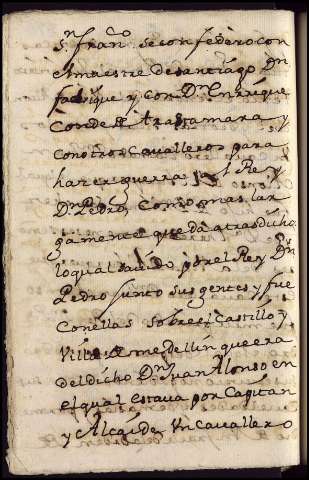 Sn franco se confedero con
el maestre de santiago Dn
fadrique y con Dn Enrrique
Conde de trastamara y
con otros Cavalleros para
hazer guerra al Rey
Dn Pedro, Como mas lar
gamente queda atras dicho
lo qual savido por el Rey Dn
Pedro junto sus gentes y fue
Con ellas sobre el Castillo y
Villa de medellin que era
del dicho Dn Juan Alonso en
el qual estava por Capitan
y Alcayde Un Cavallero